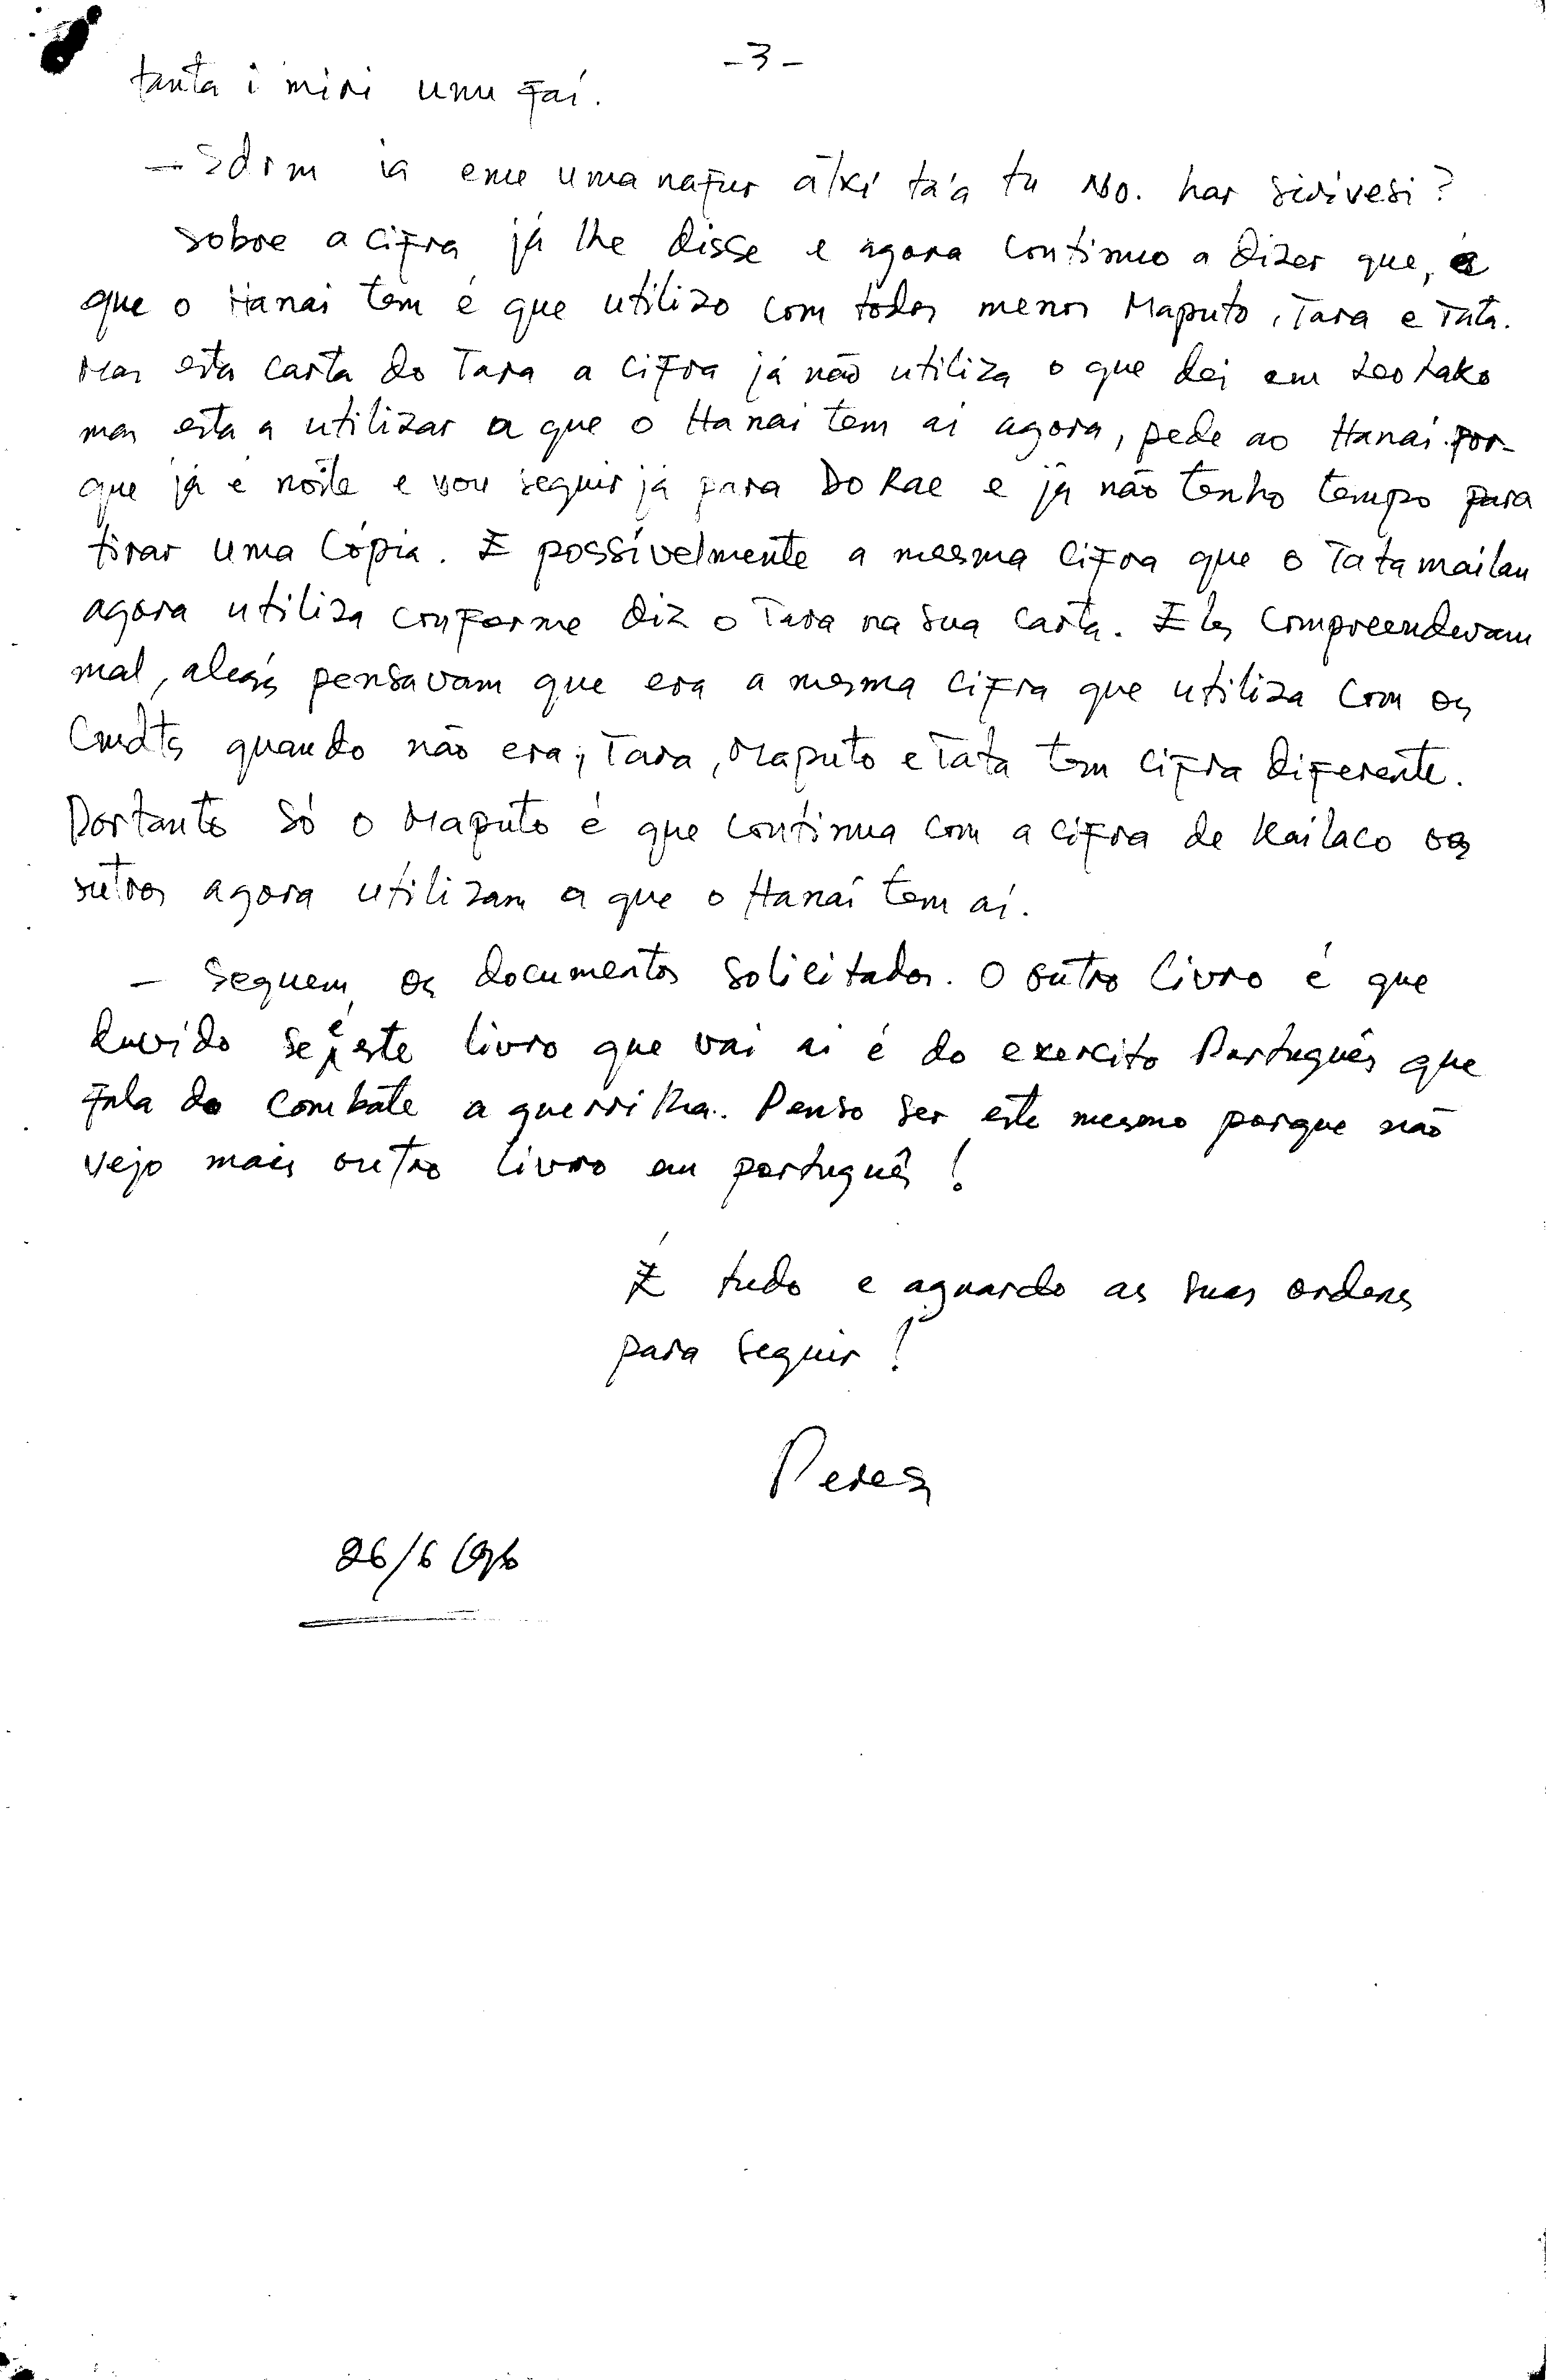 -3-
tanta i miri umu fai.
- Sdrm ia eme uma nafur ātxi ta'a tu No. har sirivesi?
Sobre a cifra já lhe disse e agora continuo a dizer que, a
que o Hanai tem é que utilizo com todos menos Maputo, Tara e Tata.
Mas esta carta do Tara a cifra já não utiliza o que dei em Leotako
mas esta a utilizar a que o Hanai tem ai agora, pede ao Hanai por-
que já é noite e vou seguir já para Do Rae e já não tenho tempo para
tirar uma Cópia. É possívelmente a mesma cifra que o Tatamailau
agora utiliza conforme diz o Tara na sua carta. Eles compreenderam
mal, aleás pensavam que era a mesma cifra que utiliza com os
Cmdts quando não era; Tara, Maputo e Tata tem cifra diferente.
Portanto só o Maputo é que continua com a cifra de Kailaco os
outros agora utilizam a que o Hanaí tem aí.
- Seguem os documentos solicitados. O outro livro é que
duvido se é este livro que vai ai é do exercito Português que
fala do combate a guerrilha. Penso ser este mesmo porque não
vejo mais outro livro em português!
É tudo e aguardo as suas ordens
para seguir!
Peres
26/6/96